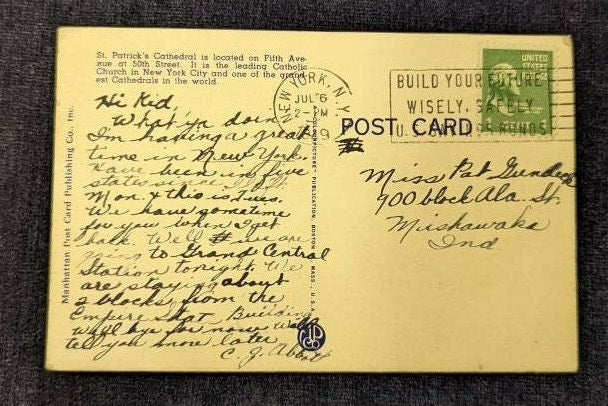 St. Patrick's Cathedral is located on Fifth Ave-
nue at 50th Street. It is the leading Catholic
Church in New York City and one of the grand-
est Cathedrals in the world.
Hi Kid,
What'in doin
I'm having a great
time in New York.
Have been in five
states since I left
Mon. & this is Tues.
We have sometime
for you when I get
back. Well we are
going to Grand Central
Station tonight. We
are staying about
2 blocks from the
Empire Stat Building
Well bye for now. Will
tell you more later
C. J. Abbott
Manhattan Post Card Publishing Co., Inc.
"A COLOURPICTURE" PUBLICATION, BOSTON, MASS., U.S.A.
NEW YORK, N.Y.
JUL 6
2-PM
BUILD YOUR FUTURE
WISELY, SAFELY
U.S. SAVINGS BONDS
UNITED
STATES
POST CARD
Miss Pat
900 block Ala. St.
Mishawaka
Ind